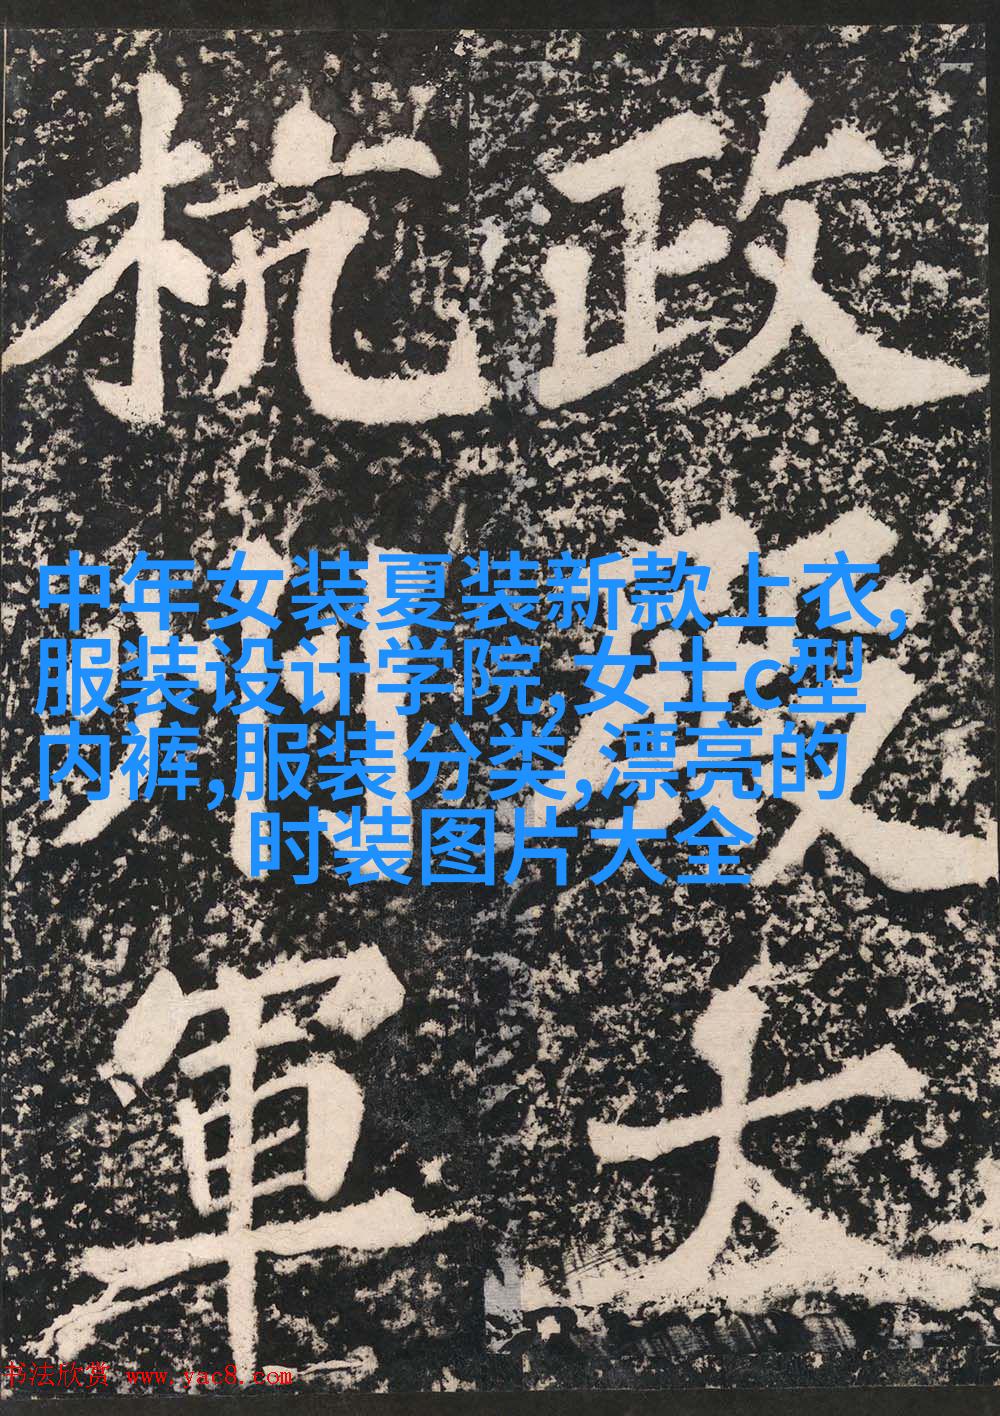 政殿大
杭州軍
中年女装夏装新款上衣,
服装设计学院,女士c型
内裤,服装分类,漂亮的
时装图片大全
书法欣赏 www.yac8.com